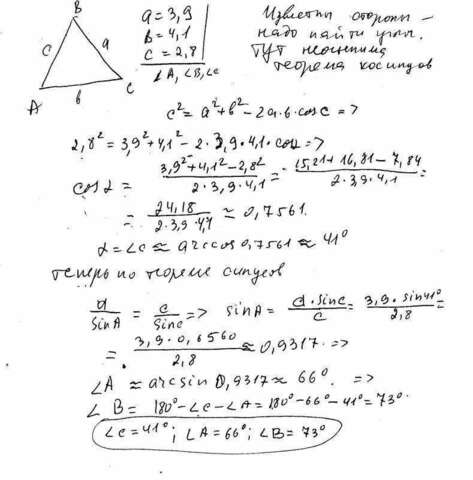 B
a = 3,9
в = 4,1
c = 2,8
∠A, ∠B, ∠c
c
a
A
b
C
Известны стороны –
надо найти углы.
Тут
теорема косинусов
c² = a² + b² - 2a·b·cosc =>
2,8² = 3,9² + 4,1² - 2·3,9·4,1·cosα =>
cosα = (3,9² + 4,1² - 2,8²)/(2·3,9·4,1) = (15,21 + 16,81 - 7,84)/(2·3,9·4,1) =
= 24,18/(2·3,9·4,1) ≈ 0,7561.
α = ∠c ≈ arccos 0,7561 ≈ 41°
теперь по теореме синусов
a/sinA = c/sinc => sinA = a·sinc/c = 3,9·sin41°/2,8 =
= 3,9·0,6560/2,8 ≈ 0,9317 =>
∠A ≈ arcsin 0,9317 ≈ 66°. =>
∠B = 180° - ∠c - ∠A = 180° - 66° - 41° = 73°
∠c = 41°; ∠A = 66°; ∠B = 73°